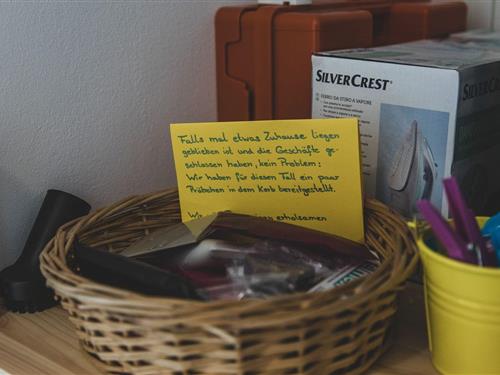 SILVERCREST®
FERRO DA STIRO A VAPORE
Falls mal etwas Zuhause liegen
geblieben ist und die Geschäfte ge-
schlossen haben, kein Problem:
Wir haben für diesen Fall ein paar
Pröbchen in dem Korb bereitgestellt.
Wir erholsamen
SILVERCREST